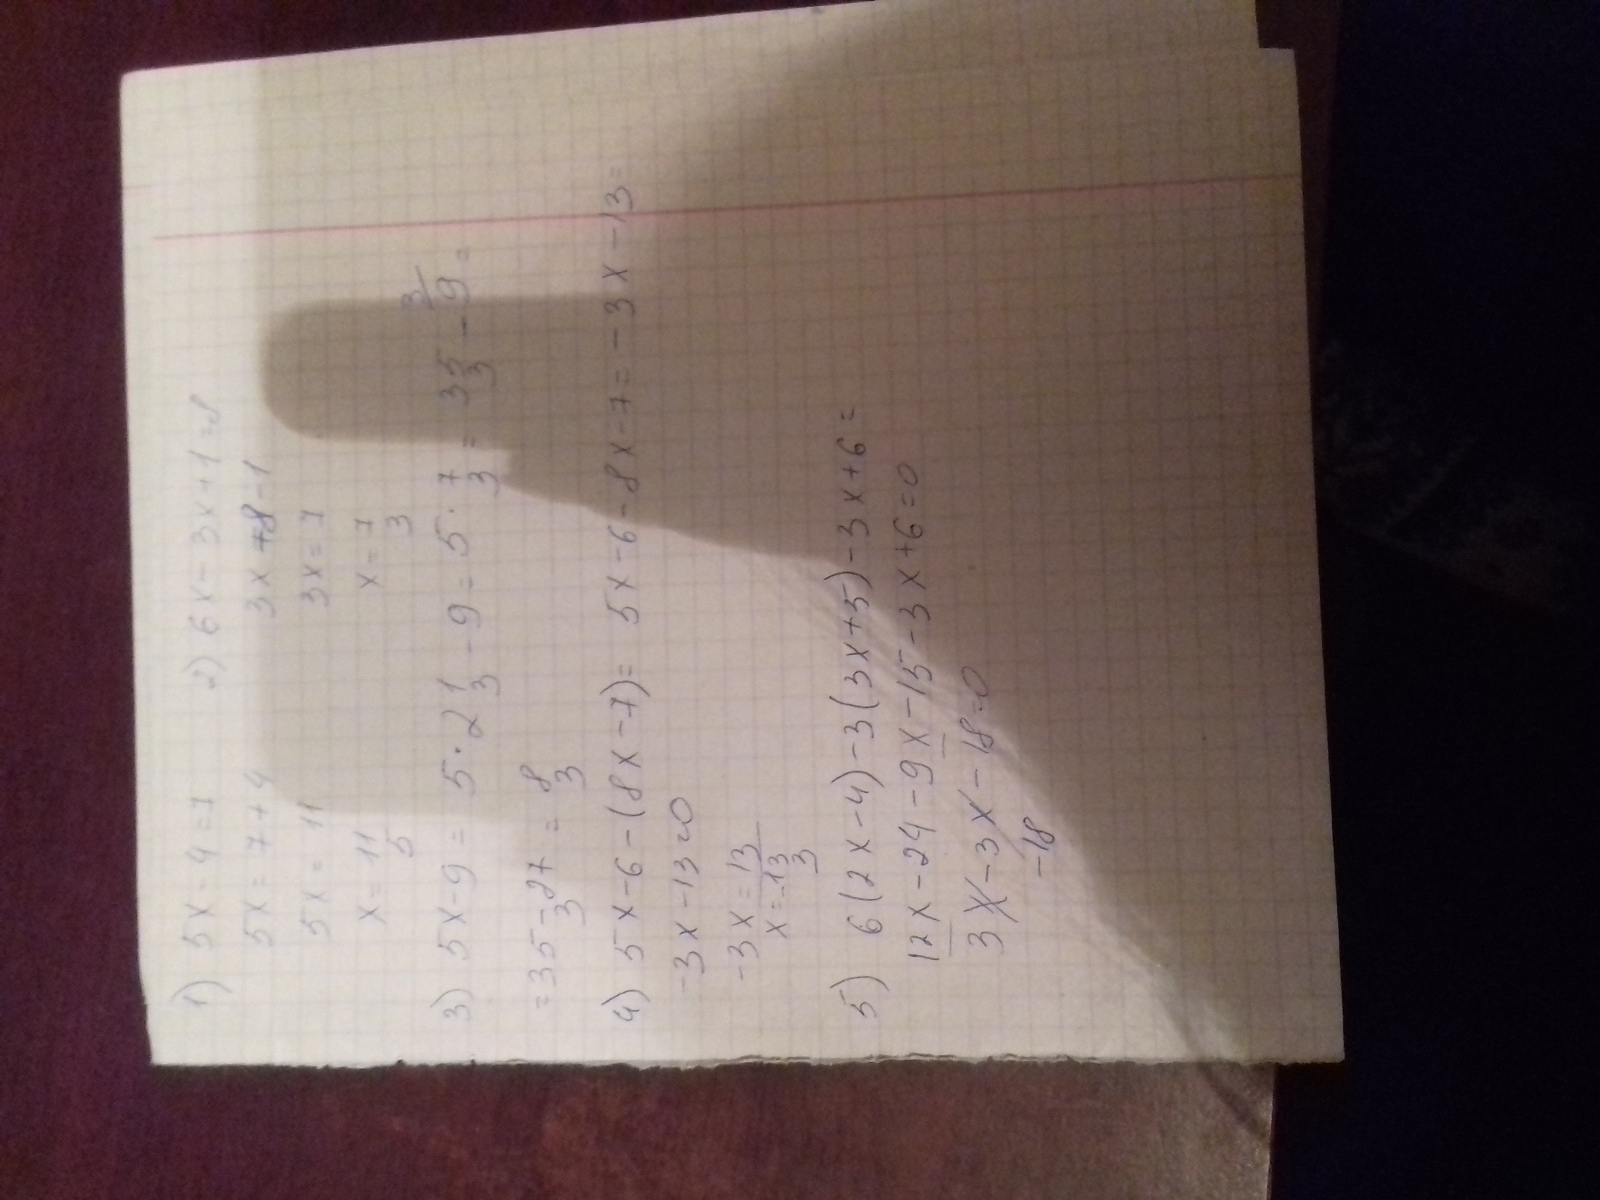 1) 5x-4=7   2) 6x-3x+1=8
5x=7+4   3x+8-1
5x=11   3x=7
x=11/5   x=7/3
3) 5x-9=5·2 1/3-9=5·7/3=35/3-9=
=35-27/3=8/3
4) 5x-6-(8x-7)=5x-6-8x-7=-3x-13=
-3x-13=0
-3x=13
x=-13/3
5) 6(2x-4)-3(3x+5)-3x+6=
12x-24-9x-15-3x+6=0
3x-3x-18=0
-18